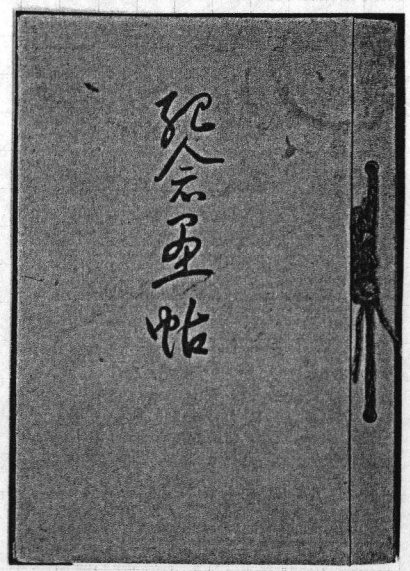 紀念畫帖